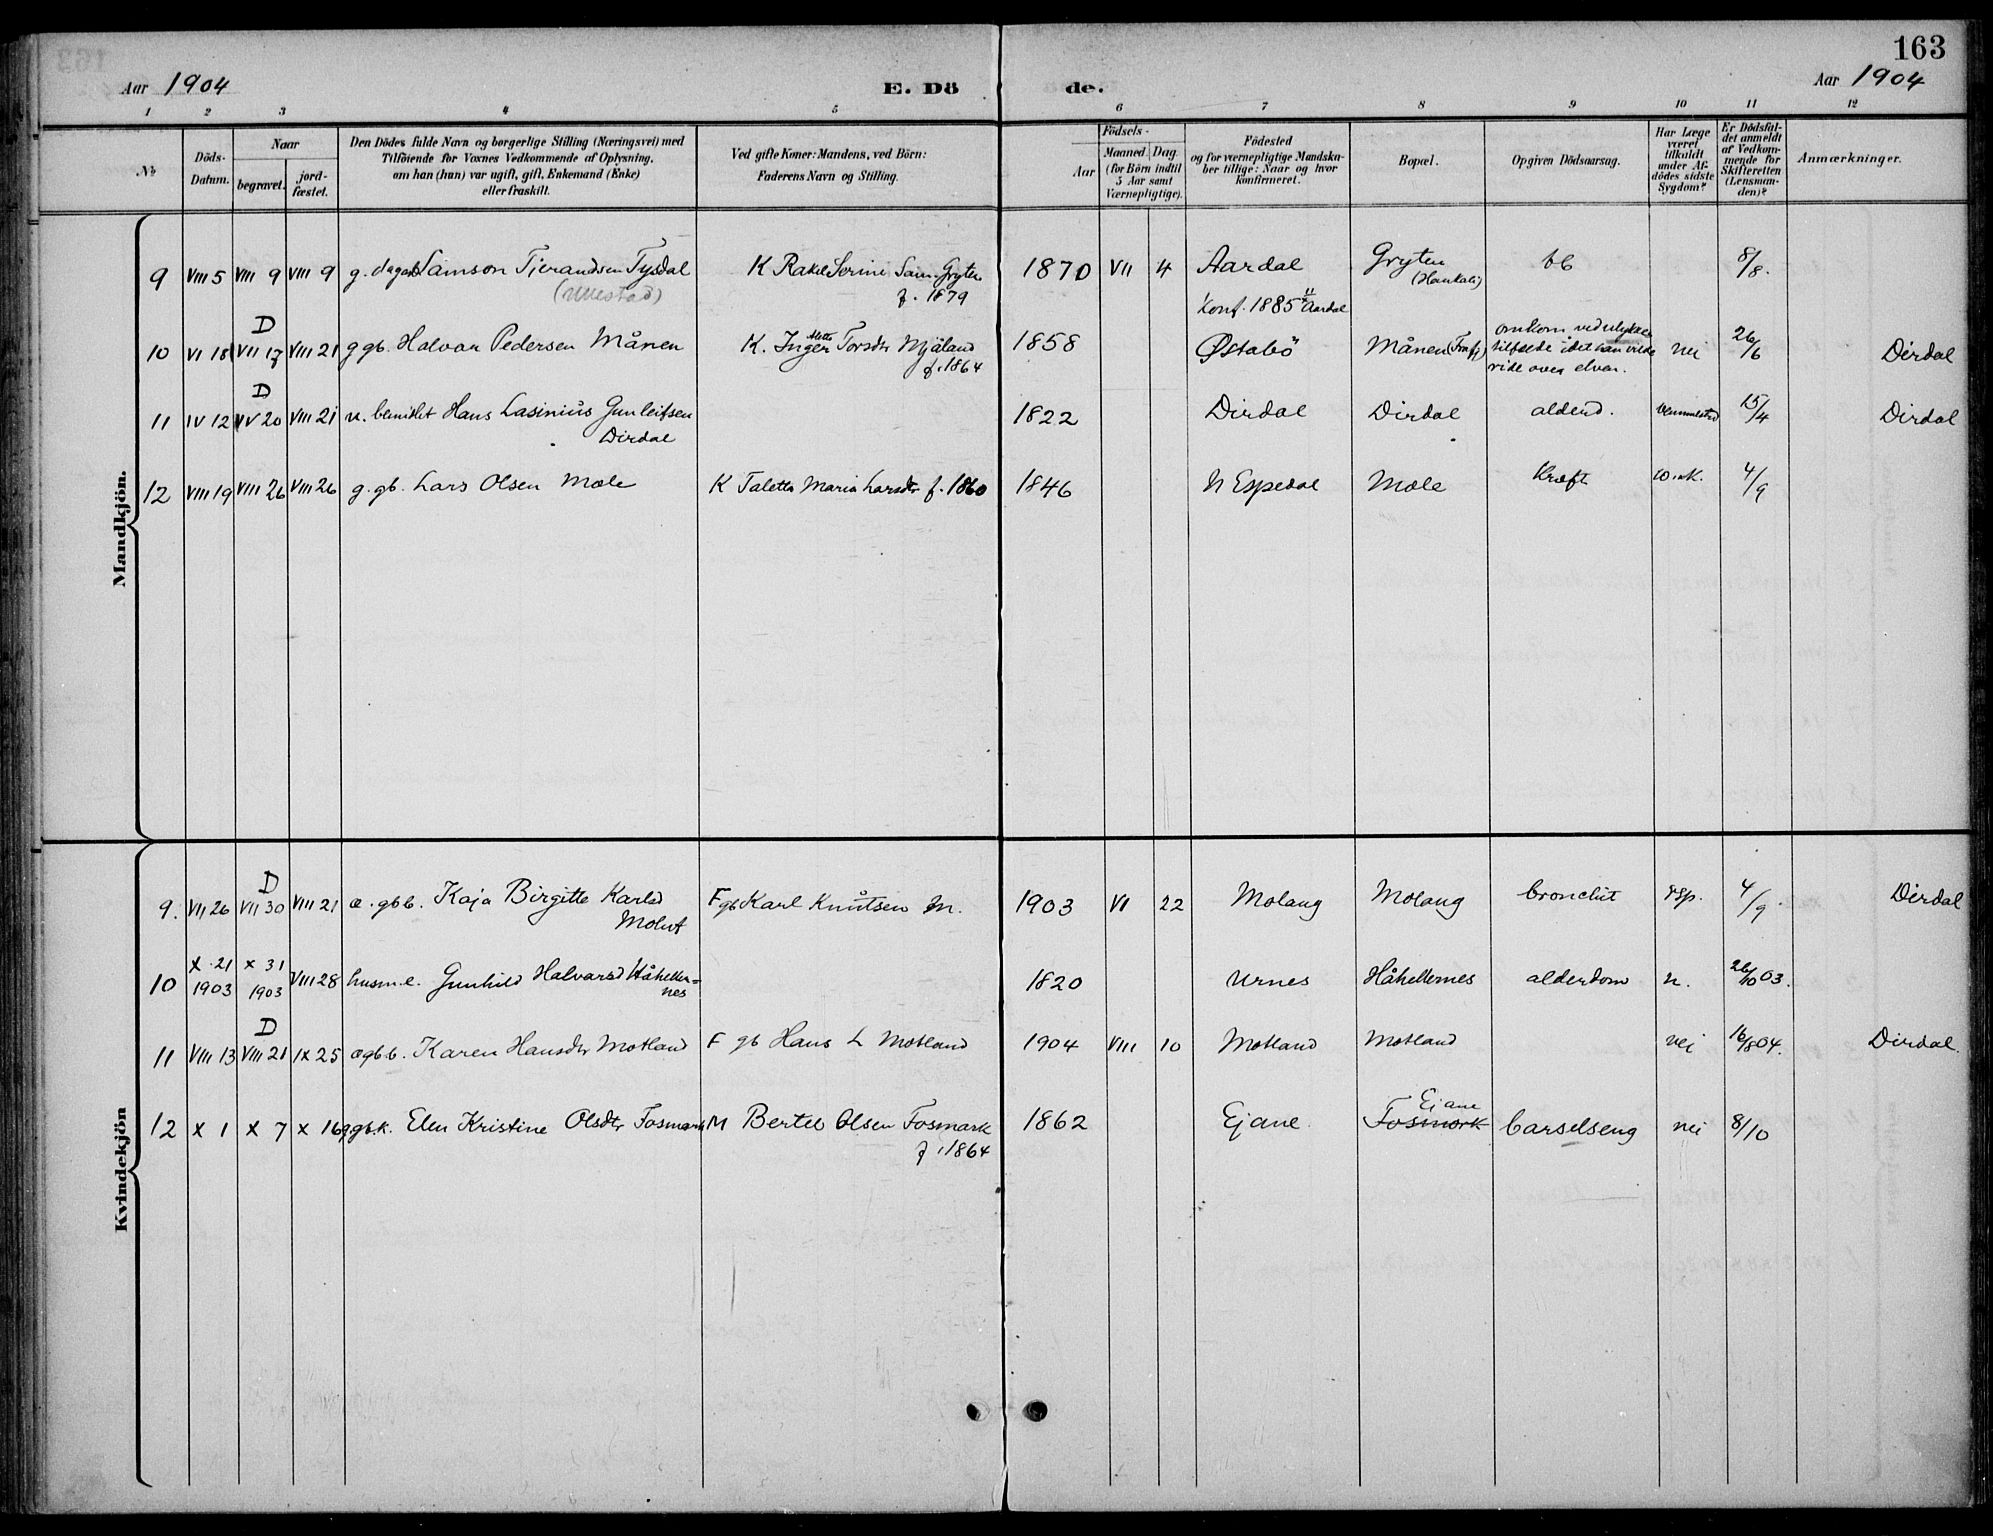 163
Aar 1904 E. Dö de. Aar 1904
1 2 3 4 5 6 7 8 9 10 11 12
No
Döds-
Datum.
Naar
begravet.
jord-
fæstet.
Den Dödes fulde Navn og borgerlige Stilling (Næringsvei) med
Tilföiende for Voxnes Vedkommende af Oplysning,
om han (hun) var ugift, gift, Enkemand (Enke)
eller fraskilt.
Ved gifte Koner: Mandens, ved Börn:
Faderens Navn og Stilling.
Födsels-
Aar
Maaned Dag
(for Börn indtil
5 Aar samt
Værnepligtige).
Födested
og for værnepligtige Mandska-
ber tillige: Naar og hvor
konfirmeret.
Bopæl.
Opgiven Dödsaarsag.
Har Læge
været
tilkaldt
under Af-
dödes sidste
Sygdom?
Er Dödsfal-
det anmeldt
af Vedkom-
mende for
Skifteretten
(Lensman-
den)?
Anmærkninger.
Mandkjön.
9 VIII 5 VIII 9 VIII 9 g. dagarb Samson Tjerandsen Tysdal K Rakel Serine Sam. Gryten 1870 VII 4 Aardal Gryten bb 8/8.
f. 1879 Konf. 1885 Aardal
D
10 VI 18 VII 17 VIII 21 g gb. Halvar Pedersen Månen K. Inger Mette Torsdtr Mjåland 1858 Østabö Månen (Frafj) omkom ved ulykkes nei 26/6 Dirdal
f. 1864 tilfælde idet han vilde
ride over elven.
D
11 IV 12 IV 20 VIII 21 u. bemidlet Hans Lasinius Gunleifsen 1822 Dirdal Dirdal alderd. 15/4 Dirdal
Dirdal
12 VIII 19 VIII 26 VIII 26 g. gb. Lars Olsen Mæle K Taletta Maria Larsdtr f. 1860 1846 N Espedal Mæle Kræft 4/9
Kvindekjön
D
9. VII 26 VII 30 VIII 21 æ. gbb. Kaja Birgitte Karlsd F gb Karl Knutsen M. 1903 VI 22 Molaug Molaug bronchit rsp. 4/9. Dirdal
X 21 X 31
10 1903 1903 VIII 28 husm.e. Gunhild Halvarsd Håheller= 1820 Urnes Håhellernes alderdom n. 26/10 03.
nes
D
11 VIII 13 VIII 21 IX 25 ægbb. Karen Hansdtr Motland F gb Hans L Motland 1904 VIII 10 Motland Motland nei 16/8 04. Dirdal.
12 X 1 X 7 X 16 ggbk. Elen Kristine Olsdtr Fosmark M Bertel Olsen Fosmark 1862 Ejane. Fosmark Ejane barselseng nei 8/10
f. 1864